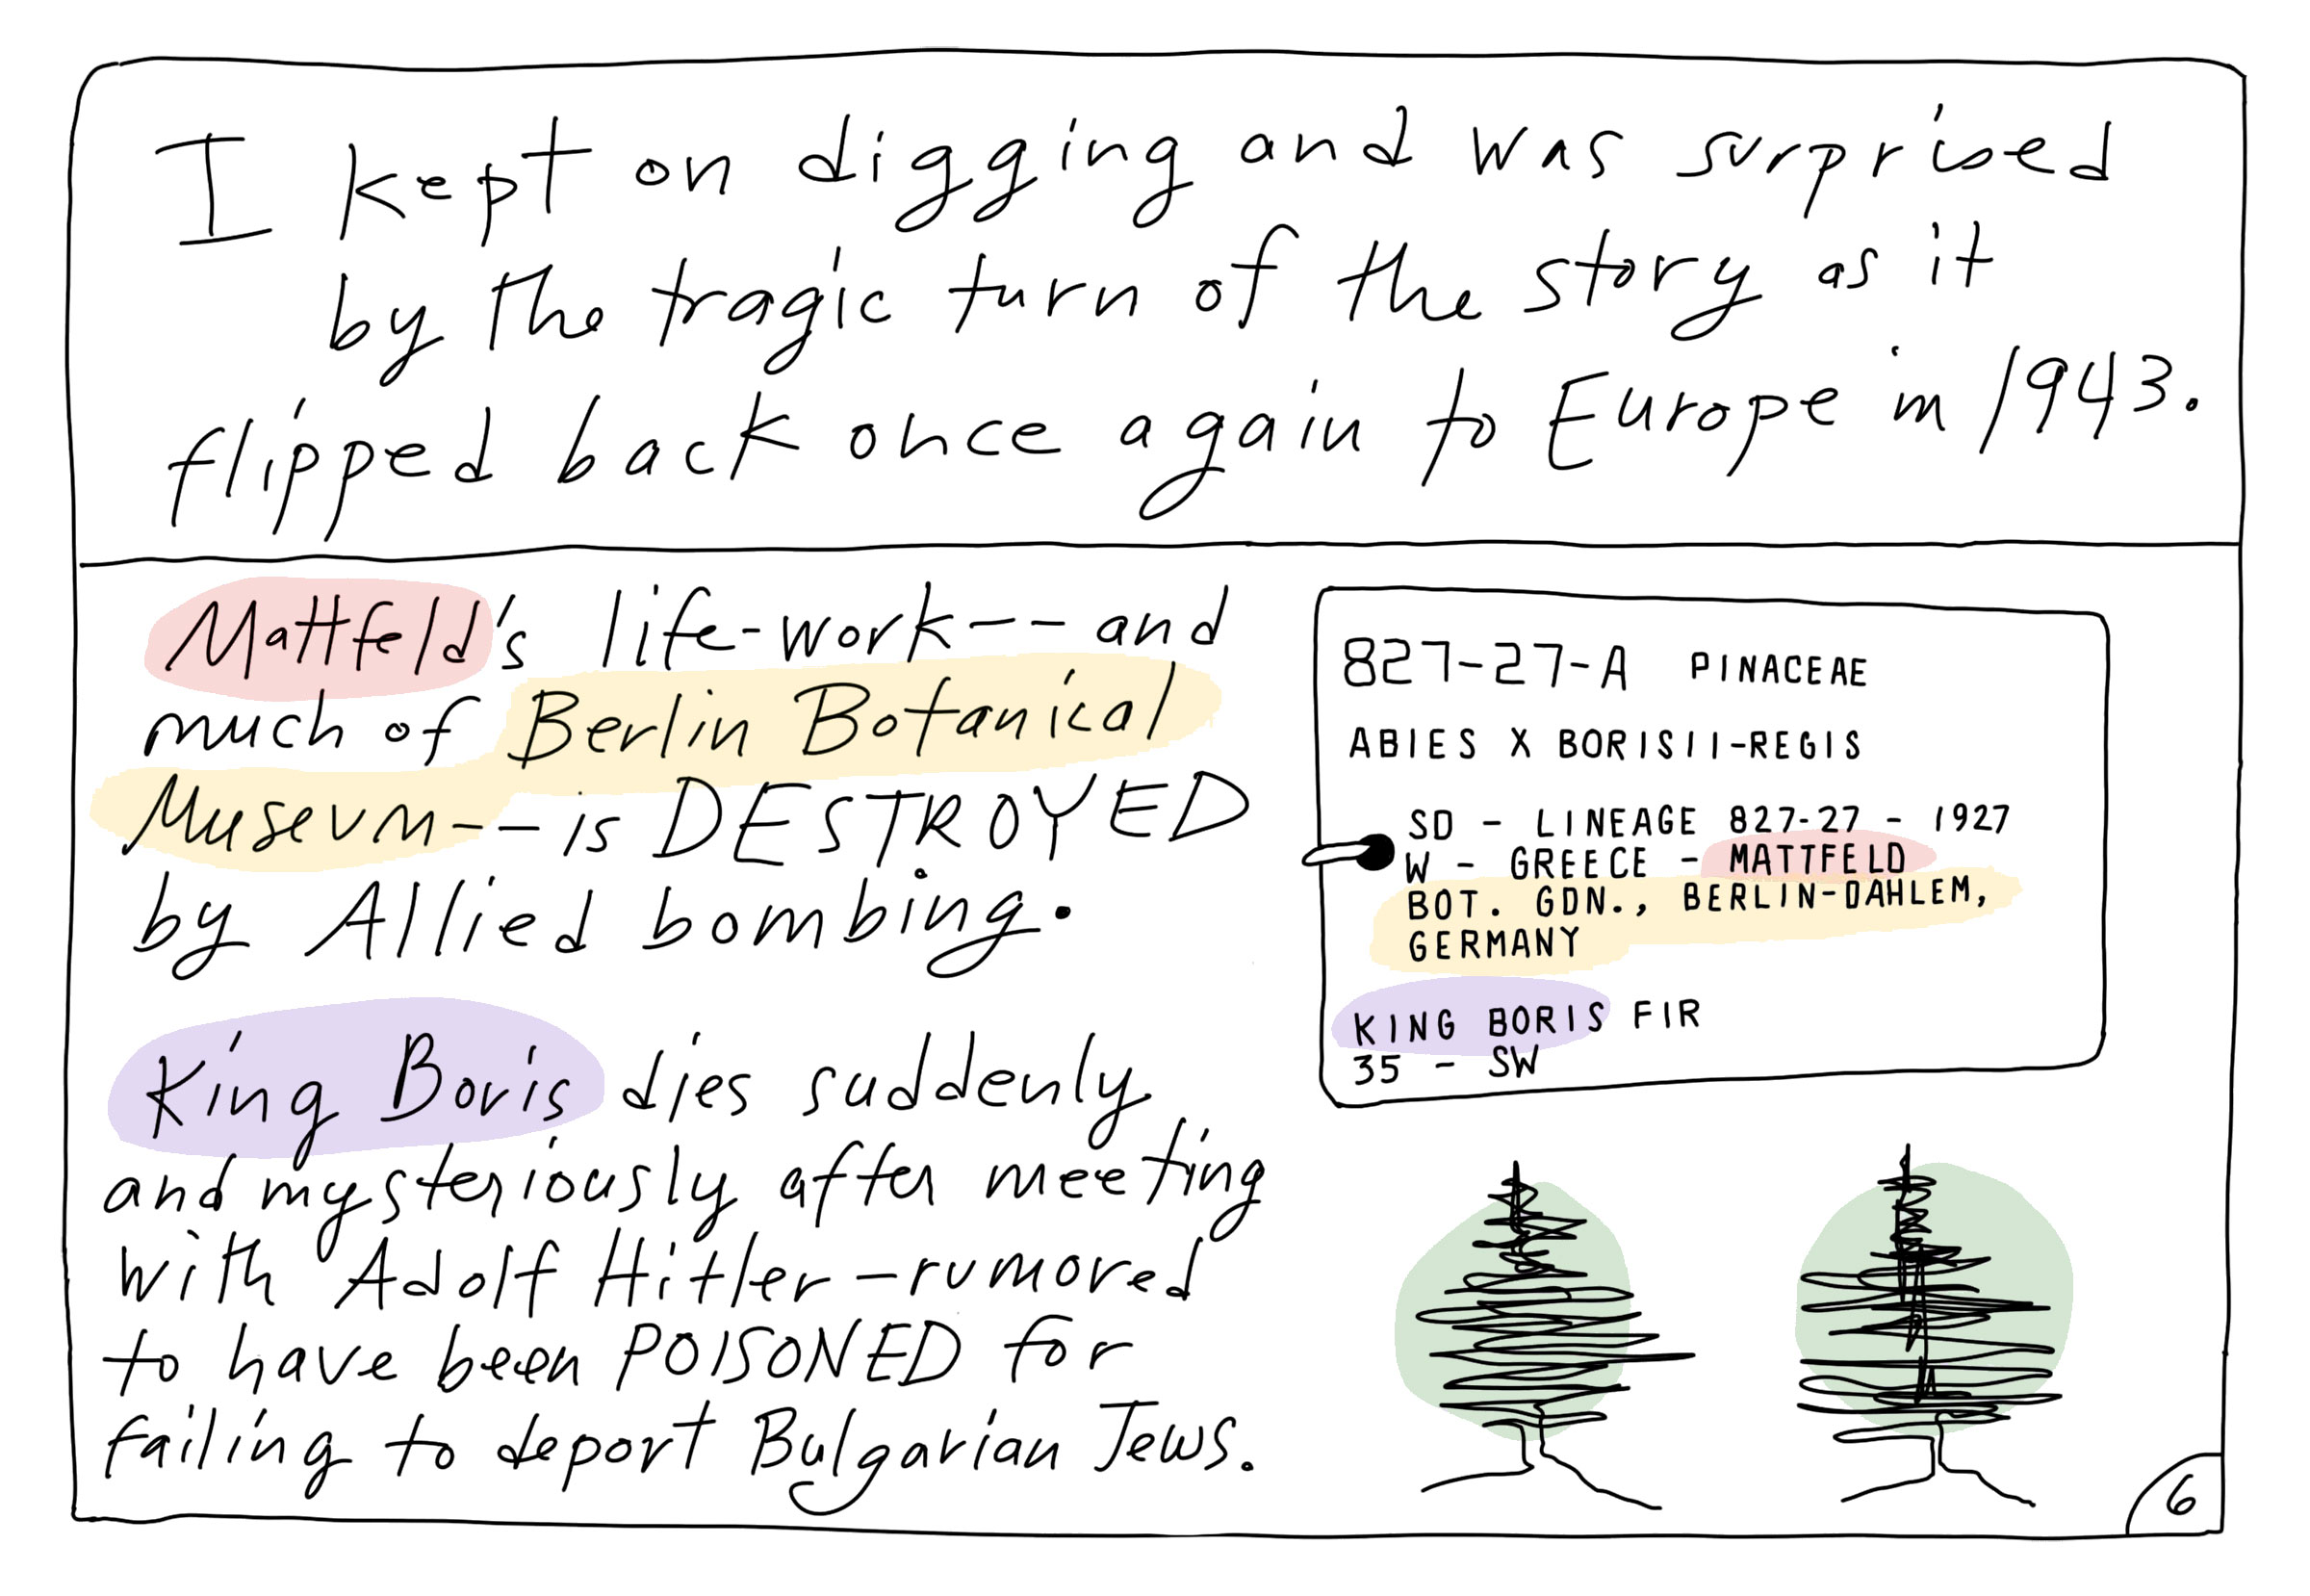 I kept on digging and was surprised
by the tragic turn of the story as it
flipped back once again to Europe in 1943.
Mattfeld's life-work--and
much of Berlin Botanical
Museum--is DESTROYED
by Allied bombing.
King Boris dies suddenly
and mysteriously after meeting
with Adolf Hitler-rumored
to have been POISONED for
failing to deport Bulgarian Jews.
827-27-A PINACEAE
ABIES X BORISII-REGIS
SD - LINEAGE 827-27 - 1927
W - GREECE - MATTFELD
BOT. GDN., BERLIN-DAHLEM,
GERMANY
KING BORIS FIR
35 - SW
6